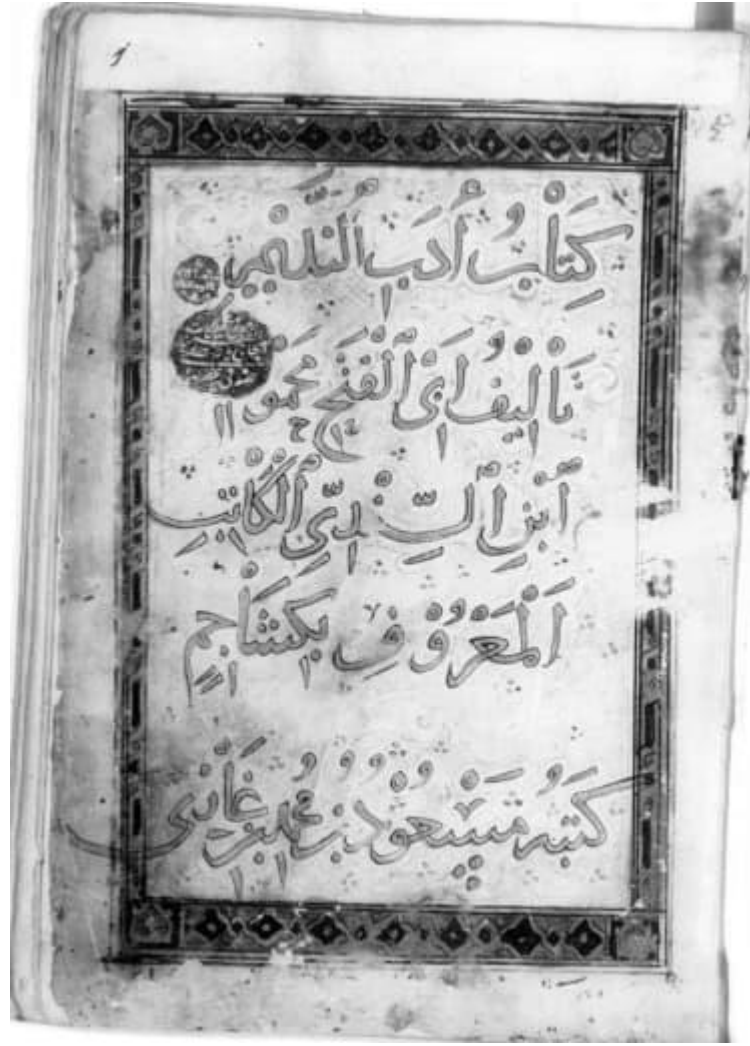 كِتَابُ أَدَبِ النَّدِيمِ
تَأْلِيفُ أَبِي الْفَتْحِ مَحْمُودِ
ابْنِ السِّنْدِيِّ الْكَاتِبِ
الْمَعْرُوفِ بِكُشَاجِمِ
كتبه مَسْعُودُ بن محمد بن غَازِي